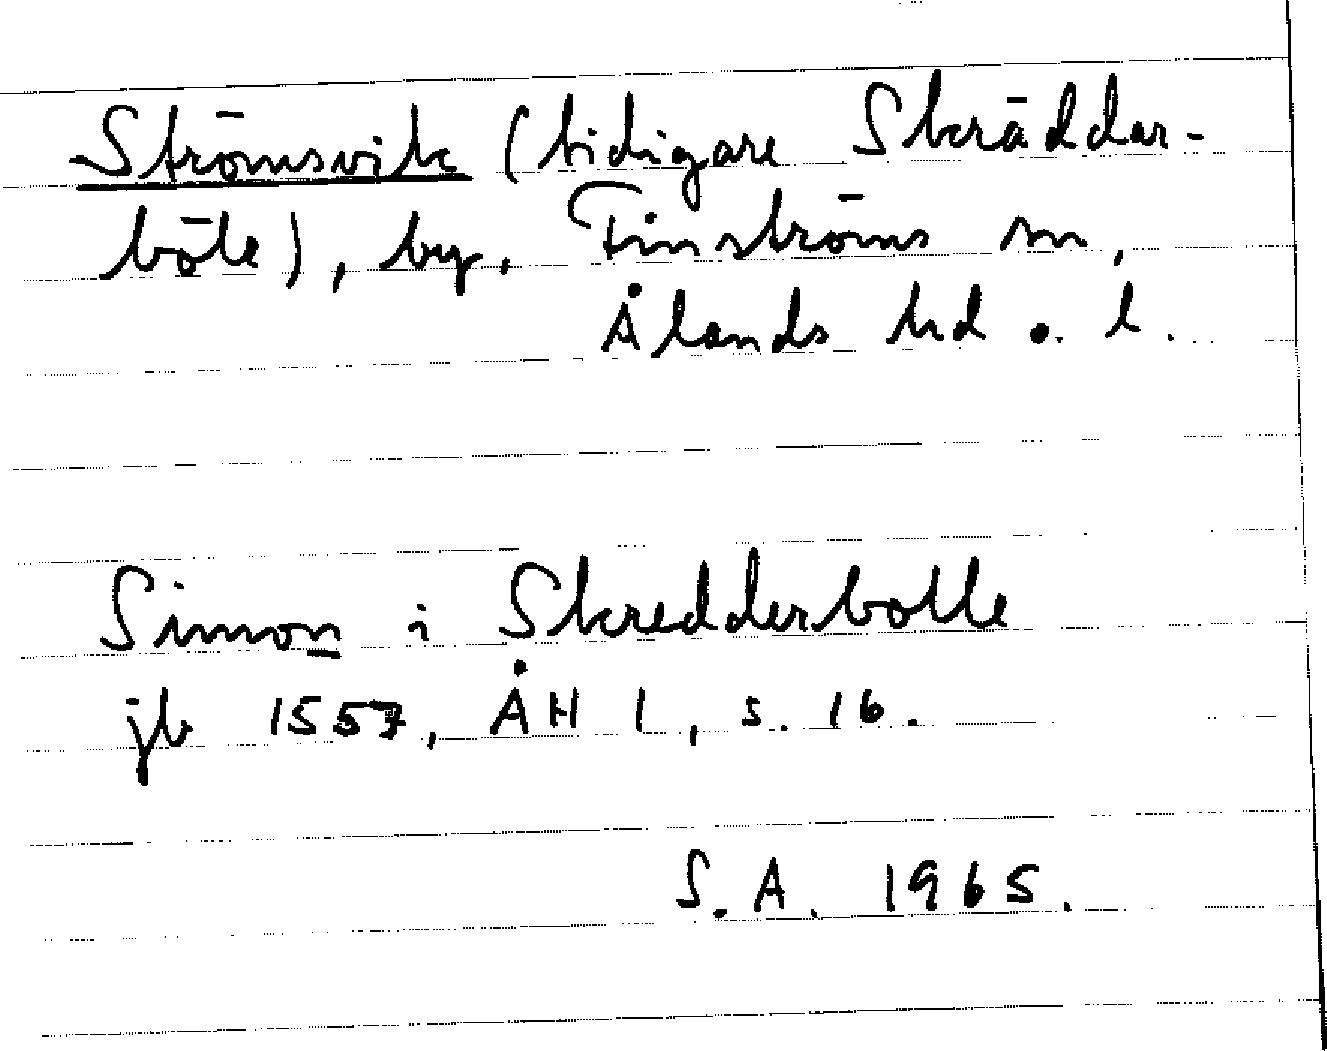 Strömsvik (tidigare Skräddar-
böle), by, Finströms sn,
Ålands hd o. l.
Simon i Skredderbolle
jb 1557, ÅH 1, s. 16.
S.A. 1965.